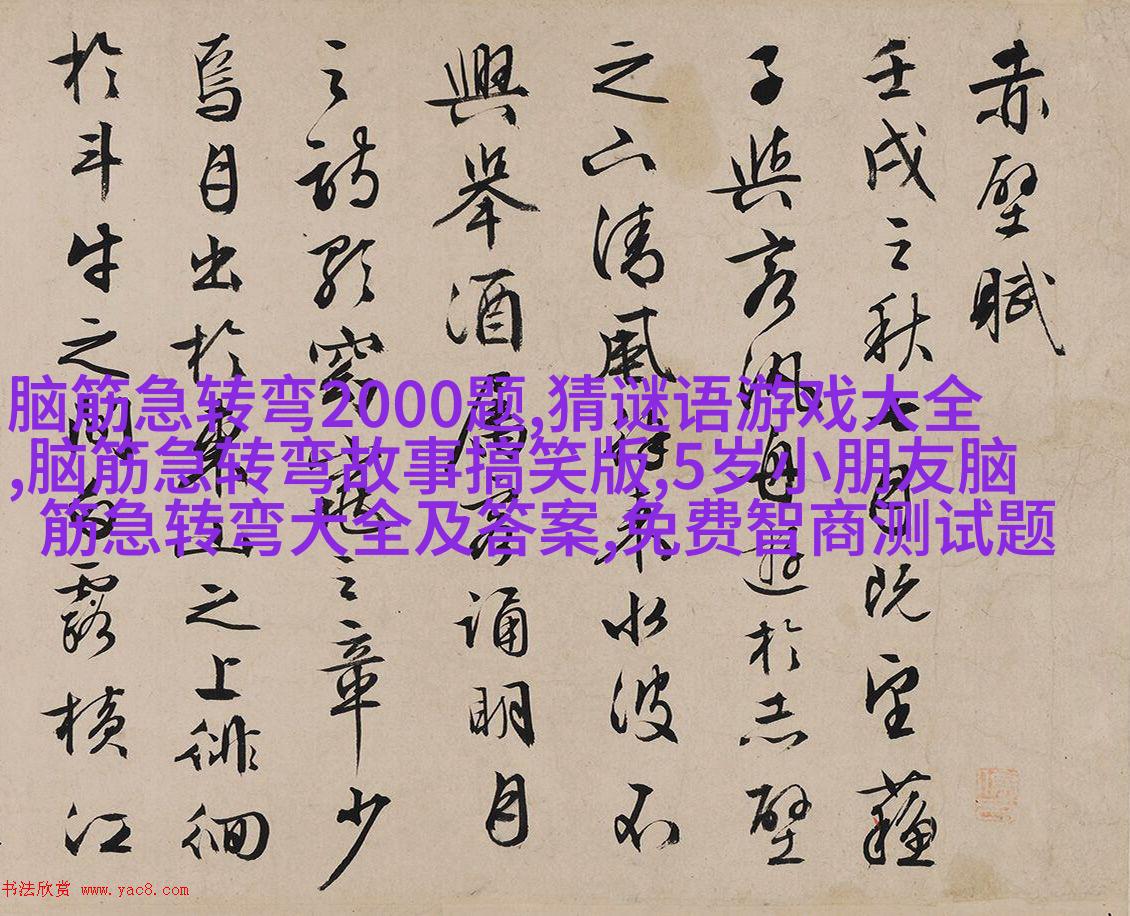 赤壁賦
壬戌之秋七月既望蘇
子與客汎舟遊於赤壁
之下清風徐來水波不
興舉酒屬客誦明月
之詩歌窈窕之章少
焉月出於東山之上徘徊
於斗牛之間白露橫江
脑筋急转弯2000题,猜谜语游戏大全
,脑筋急转弯故事搞笑版,5岁小朋友脑
筋急转弯大全及答案,免费智商测试题
书法欣赏 www.yac8.com